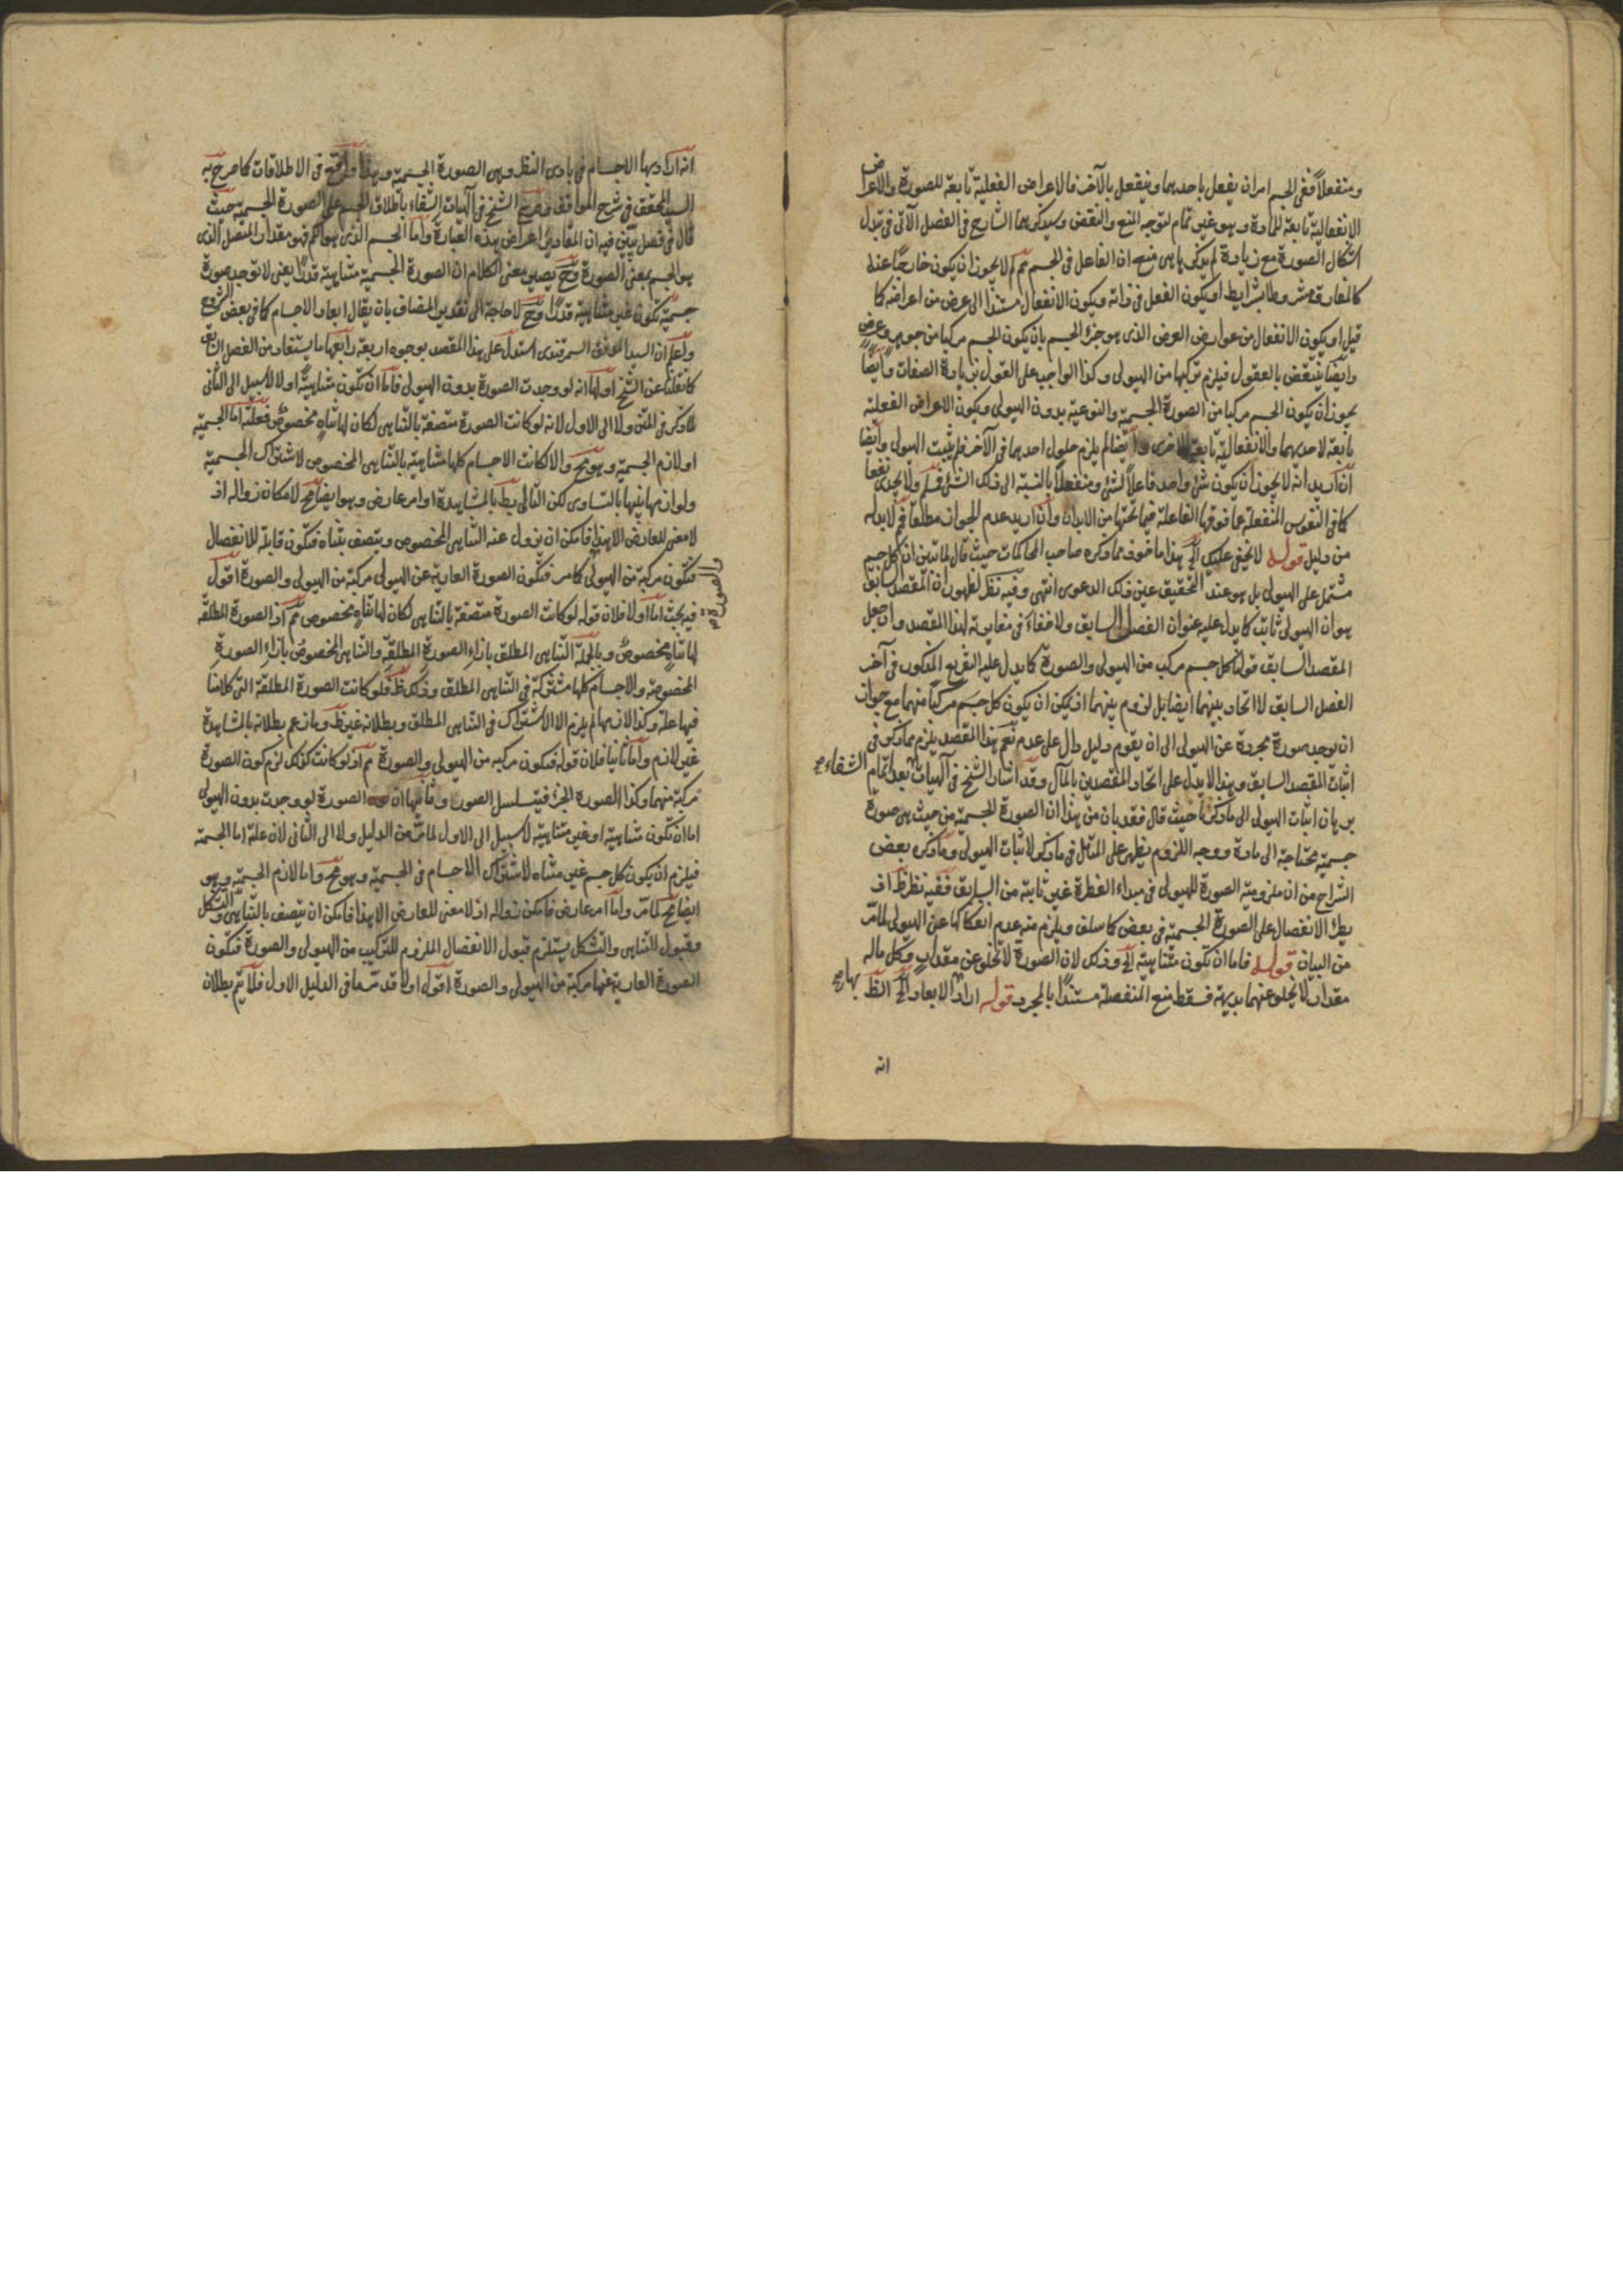 ومنفعلاً ففى الجسم امران يفعل باحدهما وينفعل بالآخر فالاعراض الفعلية تابعة للصورة والاعراض
الانفعالية تابعة للمادة وهو غير تمام لتوجه المنع والنقض وسيذكرهما الشارح فى الفصل الآتى فى تبدل
اشكال الصورة مع زيادة لم يذكرها هى منع ان الفاعل فى الجسم ثم لم لا يجوز ان يكون خارجًا عنه
كالمفارق مشروطا بشرايط او يكون الفعل فى ذاته ويكون الانفعال مستندا الى عرض من اعراضه كما
قيل او يكون الانفعال من عوارض العرض الذى هو جزء الجسم بان يكون الجسم مركبا من جوهر وعرض
وايضا ينتقض بالعقول فيلزم تركبها من الهيولى وكذا الواجب على القول بزيادة الصفات وايضًا
يجوز ان يكون الجسم مركبا من الصورة الجسمية والنوعية بدون الهيولى ويكون الاعراض الفعلية
تابعة لاحديهما والانفعالية تابعة للاخرى وايضا لم يلزم حلول احدهما فى الآخر فلم يثبت الهيولى وايضا
ان اريد انه لا يجوز ان يكون شئ واحد فاعلاً لشئ ومنفعلاً بالنسبة الى ذلك الشئ فسلم ولا يجدى نفعا
كما فى النفوس المنفعلة عما فوقها الفاعلة فيما تحتها من الابدان وان اريد عدم الجواز مطلقا فم لابد له
من دليل قوله لا يخفى عليك الخ هذا ماخوذ مما ذكره صاحب المحاكمات حيث قال لما تبين ان كل جسم
مشتمل على الهيولى بل هو عند التحقيق عين ذلك الدعوى انتهى وفيه نظر لظهور ان المقصد السابق
هو ان الهيولى ثابت كما يدل عليه عنوان الفصل السابق ولا خفاء فى مغايرته لهذا المقصد وان جعل
المقصد السابق قولنا كل جسم مركب من الهيولى والصورة كما يدل عليه التفريع المذكور فى آخر
الفصل السابق لا اتحاد بينهما ايضا بل لزوم بينهما اذ يمكن ان يكون كل جسم مركبًا منهما مع جواز
ان توجد صورة مجردة عن الهيولى الى ان يقوم دليل دال على عدم نعم هذا المقصد يلزم مما ذكر فى
اثبات المقصد السابق وهذا لا يدل على اتحاد المقصدين بالمآل وقد اشار الشيخ فى آلهيات الشفاء بعد اتمام
برهان اثبات الهيولى الى ما ذكرنا حيث قال فقد بان من هذا ان الصورة الجسمية من حيث هى صورة
جسمية محتاجة الى مادة ووجه اللزوم يظهر على المتأمل فى ما ذكر لاثبات الهيولى وما ذكره بعض
الشراح من ان ملزومية الصورة للهيولى فى مبداء الفطرة غير ثابتة من السابق ففيه نظر ظ اذ
يطرء الانفصال على الصورة الجسمية فى بعض كما سلف ويلزم منه عدم انفكاكها عن الهيولى لما مر
من البيان قوله فاما ان تكون متناهية الخ وذلك لان الصورة لا تخلو عن مقدار وكل ماله
مقدار لا يخلو عنهما بديهة فسقط منع المنفصلة مستندًا بالمجرد قوله اراد بها الابعاد الخ الظ
انه
انه اراد بها الاجسام فى بادى النظر وهى الصورة الجسمية وهذا واقع فى الاطلاقات كما صرح به
السيد المحقق فى شرح المواقف وصرح الشيخ فى آلهيات الشفاء باطلاق الجسم على الصورة الجسمية حيث
قال فى فصل بين فيه ان المقادير اعراض بهذه العبارة واما الجسم الذى هو الكم فهو مقدار المتصل الذى
هو الجسم بمعنى الصورة وح يصير معنى الكلام ان الصورة الجسمية متناهية قدرًا يعنى لا توجد صورة
جسمية تكون غير متناهية قدرًا وح لا حاجة الى تقدير المضاف بان يقال ابعاد الاجسام كما فى بعض الشروح
واعلم ان السيد السمرقندى استدل على هذا المقصد بوجوه اربعة رابعها ما يستفاد من الفصل السابق
كما نقلنا عن الشيخ اولها انه لو وجدت الصورة بدون الهيولى فاما ان تكون متناهية اولا لا سبيل الى الثانى
لما ذكر فى المتن ولا الى الاول لانه لو كانت الصورة متصفة بالتناهى لكان لها تناه مخصوص فعلته اما الجسمية
او لازم الجسمية وهو مح والا لكانت الاجسام كلها متناهية بالتناهى المخصوص لاشتراك الجسمية
ولوازمها بينها بالتساوى لكن التالى بط بالمشاهدة او امر عارض وهو ايضا مح لامكان زواله اذ
لا معنى للعارض الا هذا فامكن ان يزول عنه التناهى المخصوص ويتصف بتناه فتكون قابلة للانفصال
فتكون مركبة من الهيولى والصورة كما مر فتكون الصورة العارية عن الهيولى مركبة من الهيولى والصورة اقول
فيه بحث اما اولا فلان قوله لو كانت الصورة متصفة بالتناهى لكان لها تناه مخصوص مم اذ الصورة المطلقة
لها تناه مخصوص وبالجملة التناهى المطلق بازاء الصورة المطلقة والتناهى المخصوص بازاء الصورة
المخصوصة والاجسام كلها مشتركة فى التناهى المطلق وذلك ظ فلو كانت الصورة المطلقة التى كلامنا
فيها علة وكذا لازمها لم يلزم الا الاشتراك فى التناهى المطلق وبطلانه غير ظ وما زعم بطلانه بالمشاهدة
غير لازم واما ثانيا فلان قوله فتكون مركبة من الهيولى والصورة مم اذ لو كانت كذلك لزم كون الصورة
مركبة منهما وكذا الصورة الجزء فيتسلسل الصور وثانيها ان الصورة لو وجدت بدون الهيولى
اما ان تكون متناهية او غير متناهية لا سبيل الى الاول لما مر من الدليل ولا الى الثانى لان علة اما الجسمية
فيلزم ان يكون كل جسم غير متناه لاشتراك الاجسام فى الجسمية وهو مح واما لازم الجسمية وهو
ايضا مح لما مر واما امر عارض فامكن زواله اذ لا معنى للعارض الا هذا فامكن ان يتصف بالتناهى والتشكل
وقبول التناهى والتشكل يستلزم قبول الانفصال الملزوم للتركيب من الهيولى والصورة فتكون
الصورة العارية عنها مركبة من الهيولى والصورة اقول اولا قد مر ما فى الدليل الاول فلا يتم بطلان